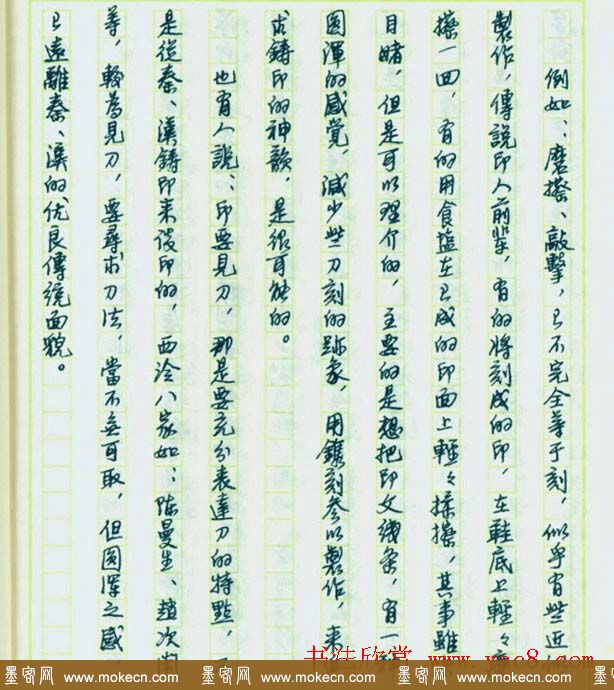 例如:磨擦、敲擊,已不完全等于刻,似乎有些近似
製作,傳說印人前輩,有的將刻成的印,在鞋底上輕々磨
擦一回,有的用食鹽在已成的印面上輕々揉擦,其事雖
目睹,但是可以理介的,主要的是想把印文綫条,有一種
圓渾的感覺,減少些刀刻的跡象,用鐫刻參以製作,来
求鑄印的神韻,是很可能的。
也有人說:印要見刀,那是要充分表達刀的特點,
是從秦、漢鑄印来談印的,西泠八家如:陈曼生、趙次閑
等,較為見刀,要尋求刀法,當不無可取,但圓渾之感,
已遠離秦、漢的优良傳統面貌。
书法欣赏 www.yac8.com
墨客网 www.mokecn.com 墨客网 www.mokecn.com 墨客网 www.mokecn.com